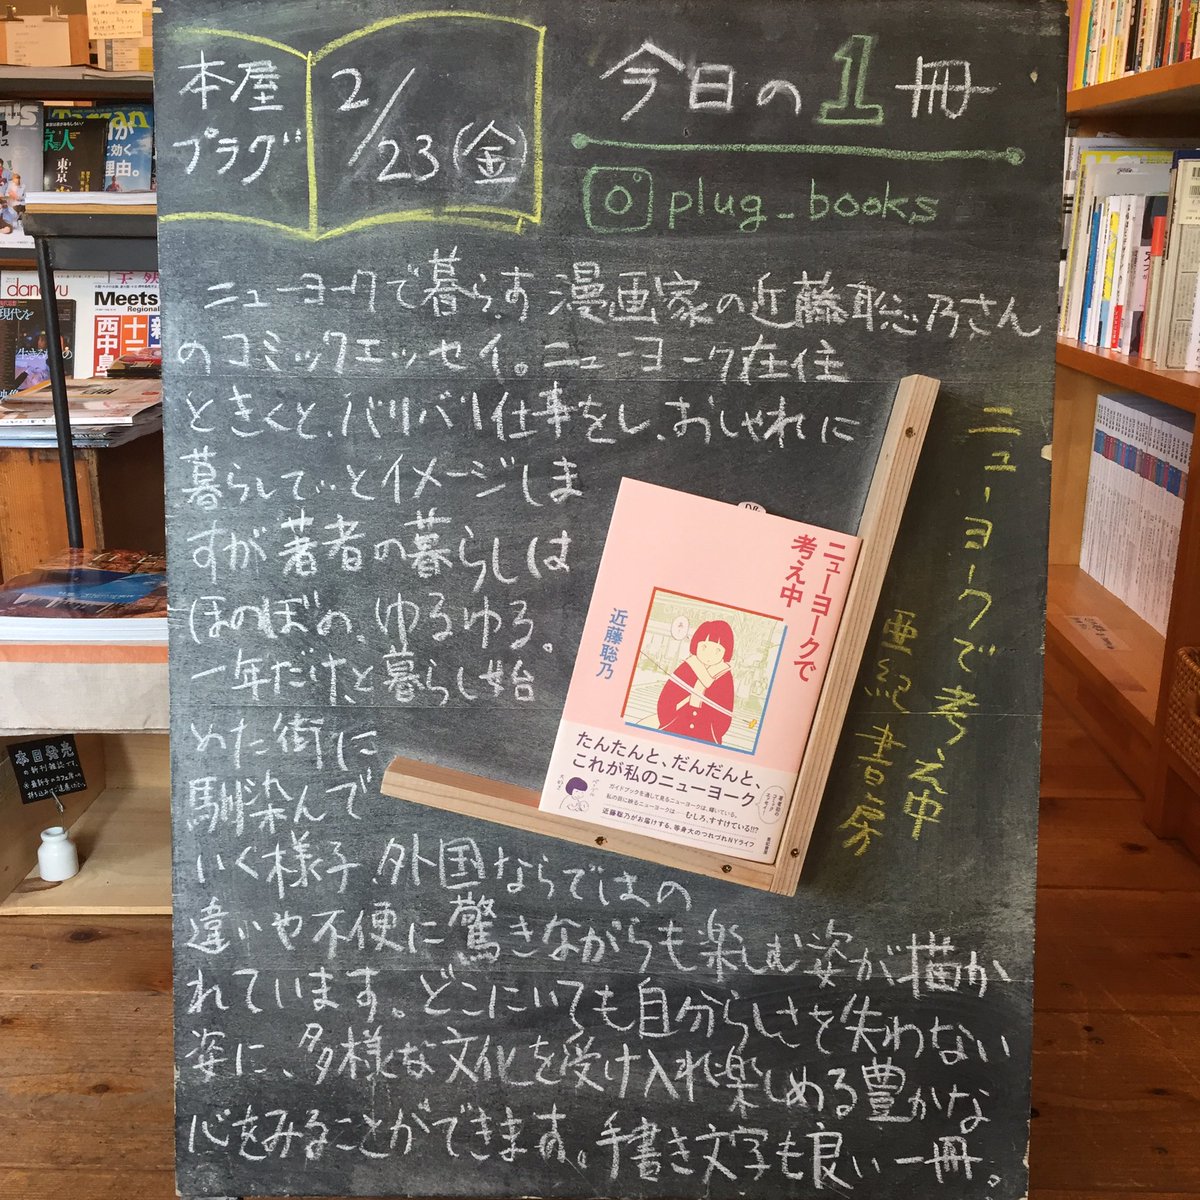 本屋
プラグ
2/23(金)
今日の1冊
plug_books
ニューヨークで暮らす漫画家の近藤聡乃さん
のコミックエッセイ。ニューヨーク在住
ときくと、バリバリ仕事をし、おしゃれに
暮らして…とイメージしま
すが著者の暮らしは
ほのぼの、ゆるゆる。
一年だけ、と暮らし始
めた街に
馴染んで
いく様子、外国ならではの
違いや不便に驚きながらも楽しむ姿が描か
れています。どこにいても自分らしさを失わない
姿に、多様な文化を受け入れ楽しめる豊かな
心をみることができます。手書き文字も良い一冊。
ニューヨークで考え中
亜紀書房
ニューヨークで
考え中
近藤聡乃
たんたんと、だんだんと、
これが私のニューヨーク
ガイドブックを通して見るニューヨークは、輝いている。
私の目に映るニューヨークは──むしろ、すすけている!!?
近藤聡乃がお届けする、等身大のつれづれNYライフ
Tarzan
Meets
Regional
西中島
十三
本日発売
の新刊雑誌です。